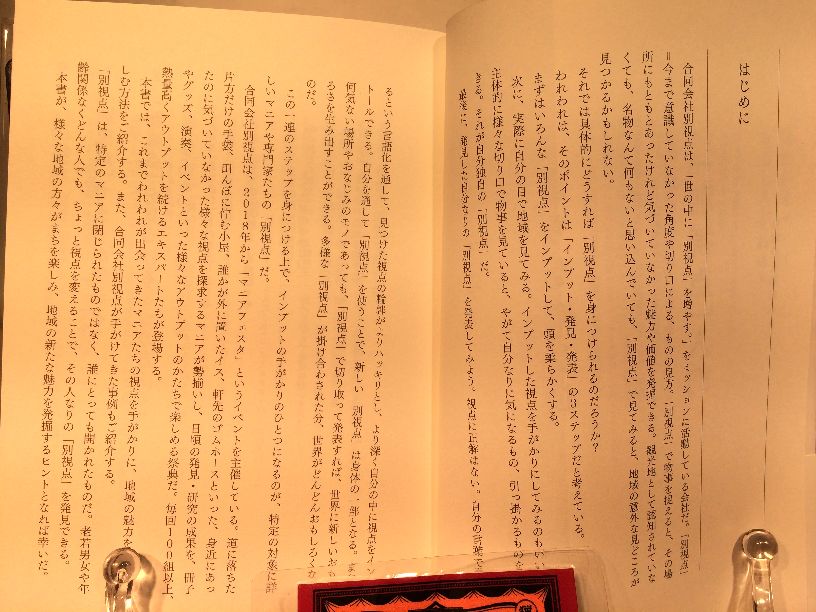 はじめに
合同会社別視点は、「世の中に「別視点」を増やす。」をミッションに活動している会社だ。「別視点」
＝今まで意識していなかった角度や切り口による、ものの見方。「別視点」で物事を捉えると、その場
所にもともとあったけれど気づいていなかった魅力や価値を発掘できる。観光地として認知されていな
くても、名物なんて何もないと思い込んでいても、「別視点」で見てみると、地域の意外な見どころが
見つかるかもしれない。
それでは具体的にどうすれば「別視点」を身につけられるのだろうか？
われわれは、そのポイントは「インプット・発見・発表」の3ステップだと考えている。
まずはいろんな「別視点」をインプットして、頭を柔らかくする。
次に、実際に自分の目で地域を見てみる。インプットした視点を手がかりにしてみるのもいい
主体的に様々な切り口で物事を見ていると、やがて自分なりに気になるもの、引っ掛かるものを
きる。それが自分独自の「別視点」だ。
最後に、発見した自分なりの「別視点」を発表してみよう。視点に正解はない。自分の言葉で
るという言語化を通して、見つけた視点の輪郭がよりハッキリとし、より深く自分の中に視点をイン
トールできる。自分を通して「別視点」を使うことで、新しい「別視点」は身体の一部となる。
何気ない場所やおなじみのモノであっても、「別視点」で切り取って発表すれば、世界に新しいおも
ろさを生み出すことができる。多様な「別視点」が掛け合わされた分、世界がどんどんおもしろくな
のだ。
この一連のステップを身につける上で、インプットの手がかりのひとつになるのが、特定の対象に詳
しいマニアや専門家たちの「別視点」だ。
合同会社別視点は、2018年から「マニアフェスタ」というイベントを主催している。道に落ちた
片方だけの手袋、田んぼに佇む小屋、誰かが外に置いたイス、軒先のゴムホースといった、身近にあっ
たのに気づいていなかった様々な視点を探求するマニアが勢揃いし、日頃の発見・研究の成果を、冊子
やグッズ、演奏、イベントといった様々なアウトプットのかたちで楽しめる祭典だ。毎回100組以上、
熱量高くアウトプットを続けるエキスパートたちが登場する。
本書では、これまでわれわれが出会ってきたマニアたちの視点を手がかりに、地域の魅力を
しむ方法をご紹介する。また、合同会社別視点が手がけてきた事例もご紹介する。
「別視点」は、特定のマニアに閉じられたものではなく、誰にとっても開かれたものだ。老若男女や年
齢関係なくどんな人でも、ちょっと視点を変えることで、その人なりの「別視点」を発見できる。
本書が、様々な地域の方々がまちを楽しみ、地域の新たな魅力を発掘するヒントとなれば幸いだ。